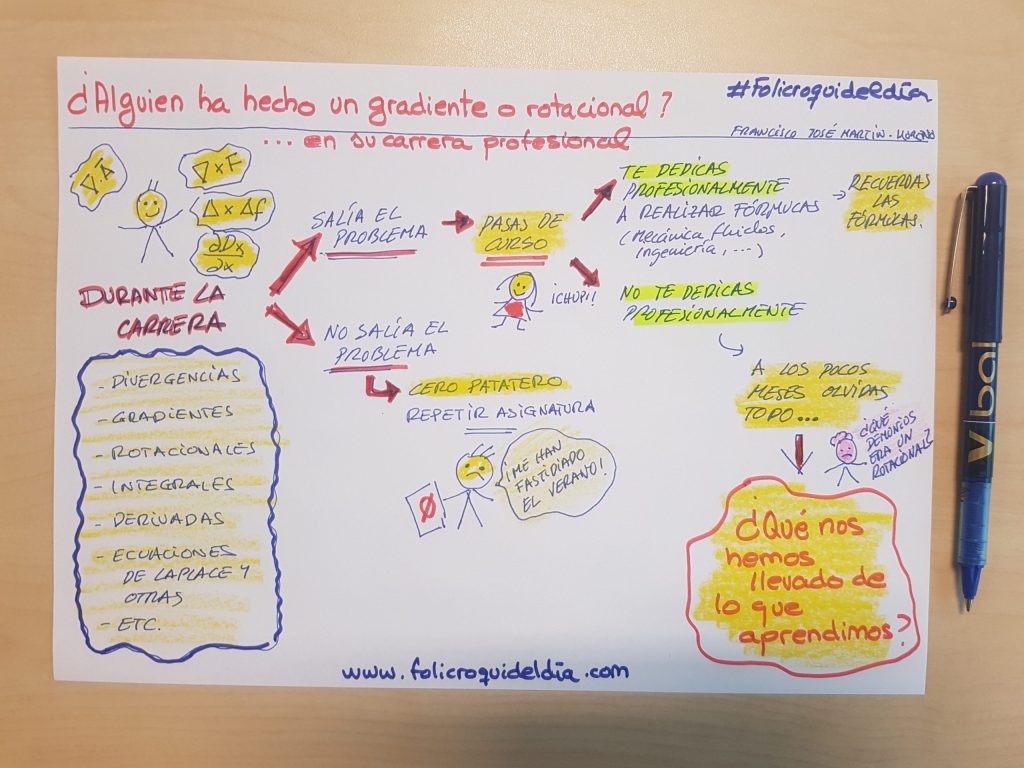 ¿Alguien ha hecho un gradiente o rotacional?
... en su carrera profesional
#Folicroquideldía
FRANCISCO JOSÉ MARTÍN-MORENO
∇·A
∇×F
Δ×Δf
∂Dx
∂x
DURANTE LA
CARRERA
- DIVERGENCIAS
- GRADIENTES
- ROTACIONALES
- INTEGRALES
- DERIVADAS
- ECUACIONES
DE LAPLACE Y
OTRAS
- ETC.
SALÍA EL
PROBLEMA
PASAS DE
CURSO
¡CHUPI!
NO SALÍA EL
PROBLEMA
CERO PATATERO
REPETIR ASIGNATURA
¡ME HAN
FASTIDIADO
EL VERANO!
Ø
TE DEDICAS
PROFESIONALMENTE
A REALIZAR FÓRMULAS
(Mecánica fluidos,
ingeniería, ...)
RECUERDAS
LAS
FÓRMULAS.
NO TE DEDICAS
PROFESIONALMENTE
A LOS POCOS
MESES OLVIDAS
TODO...
¿QUÉ
DEMONIOS
ERA UN
ROTACIONAL?
¿Qué nos
hemos
llevado de
lo que
aprendimos?
www.folicroquideldía.com
V ball